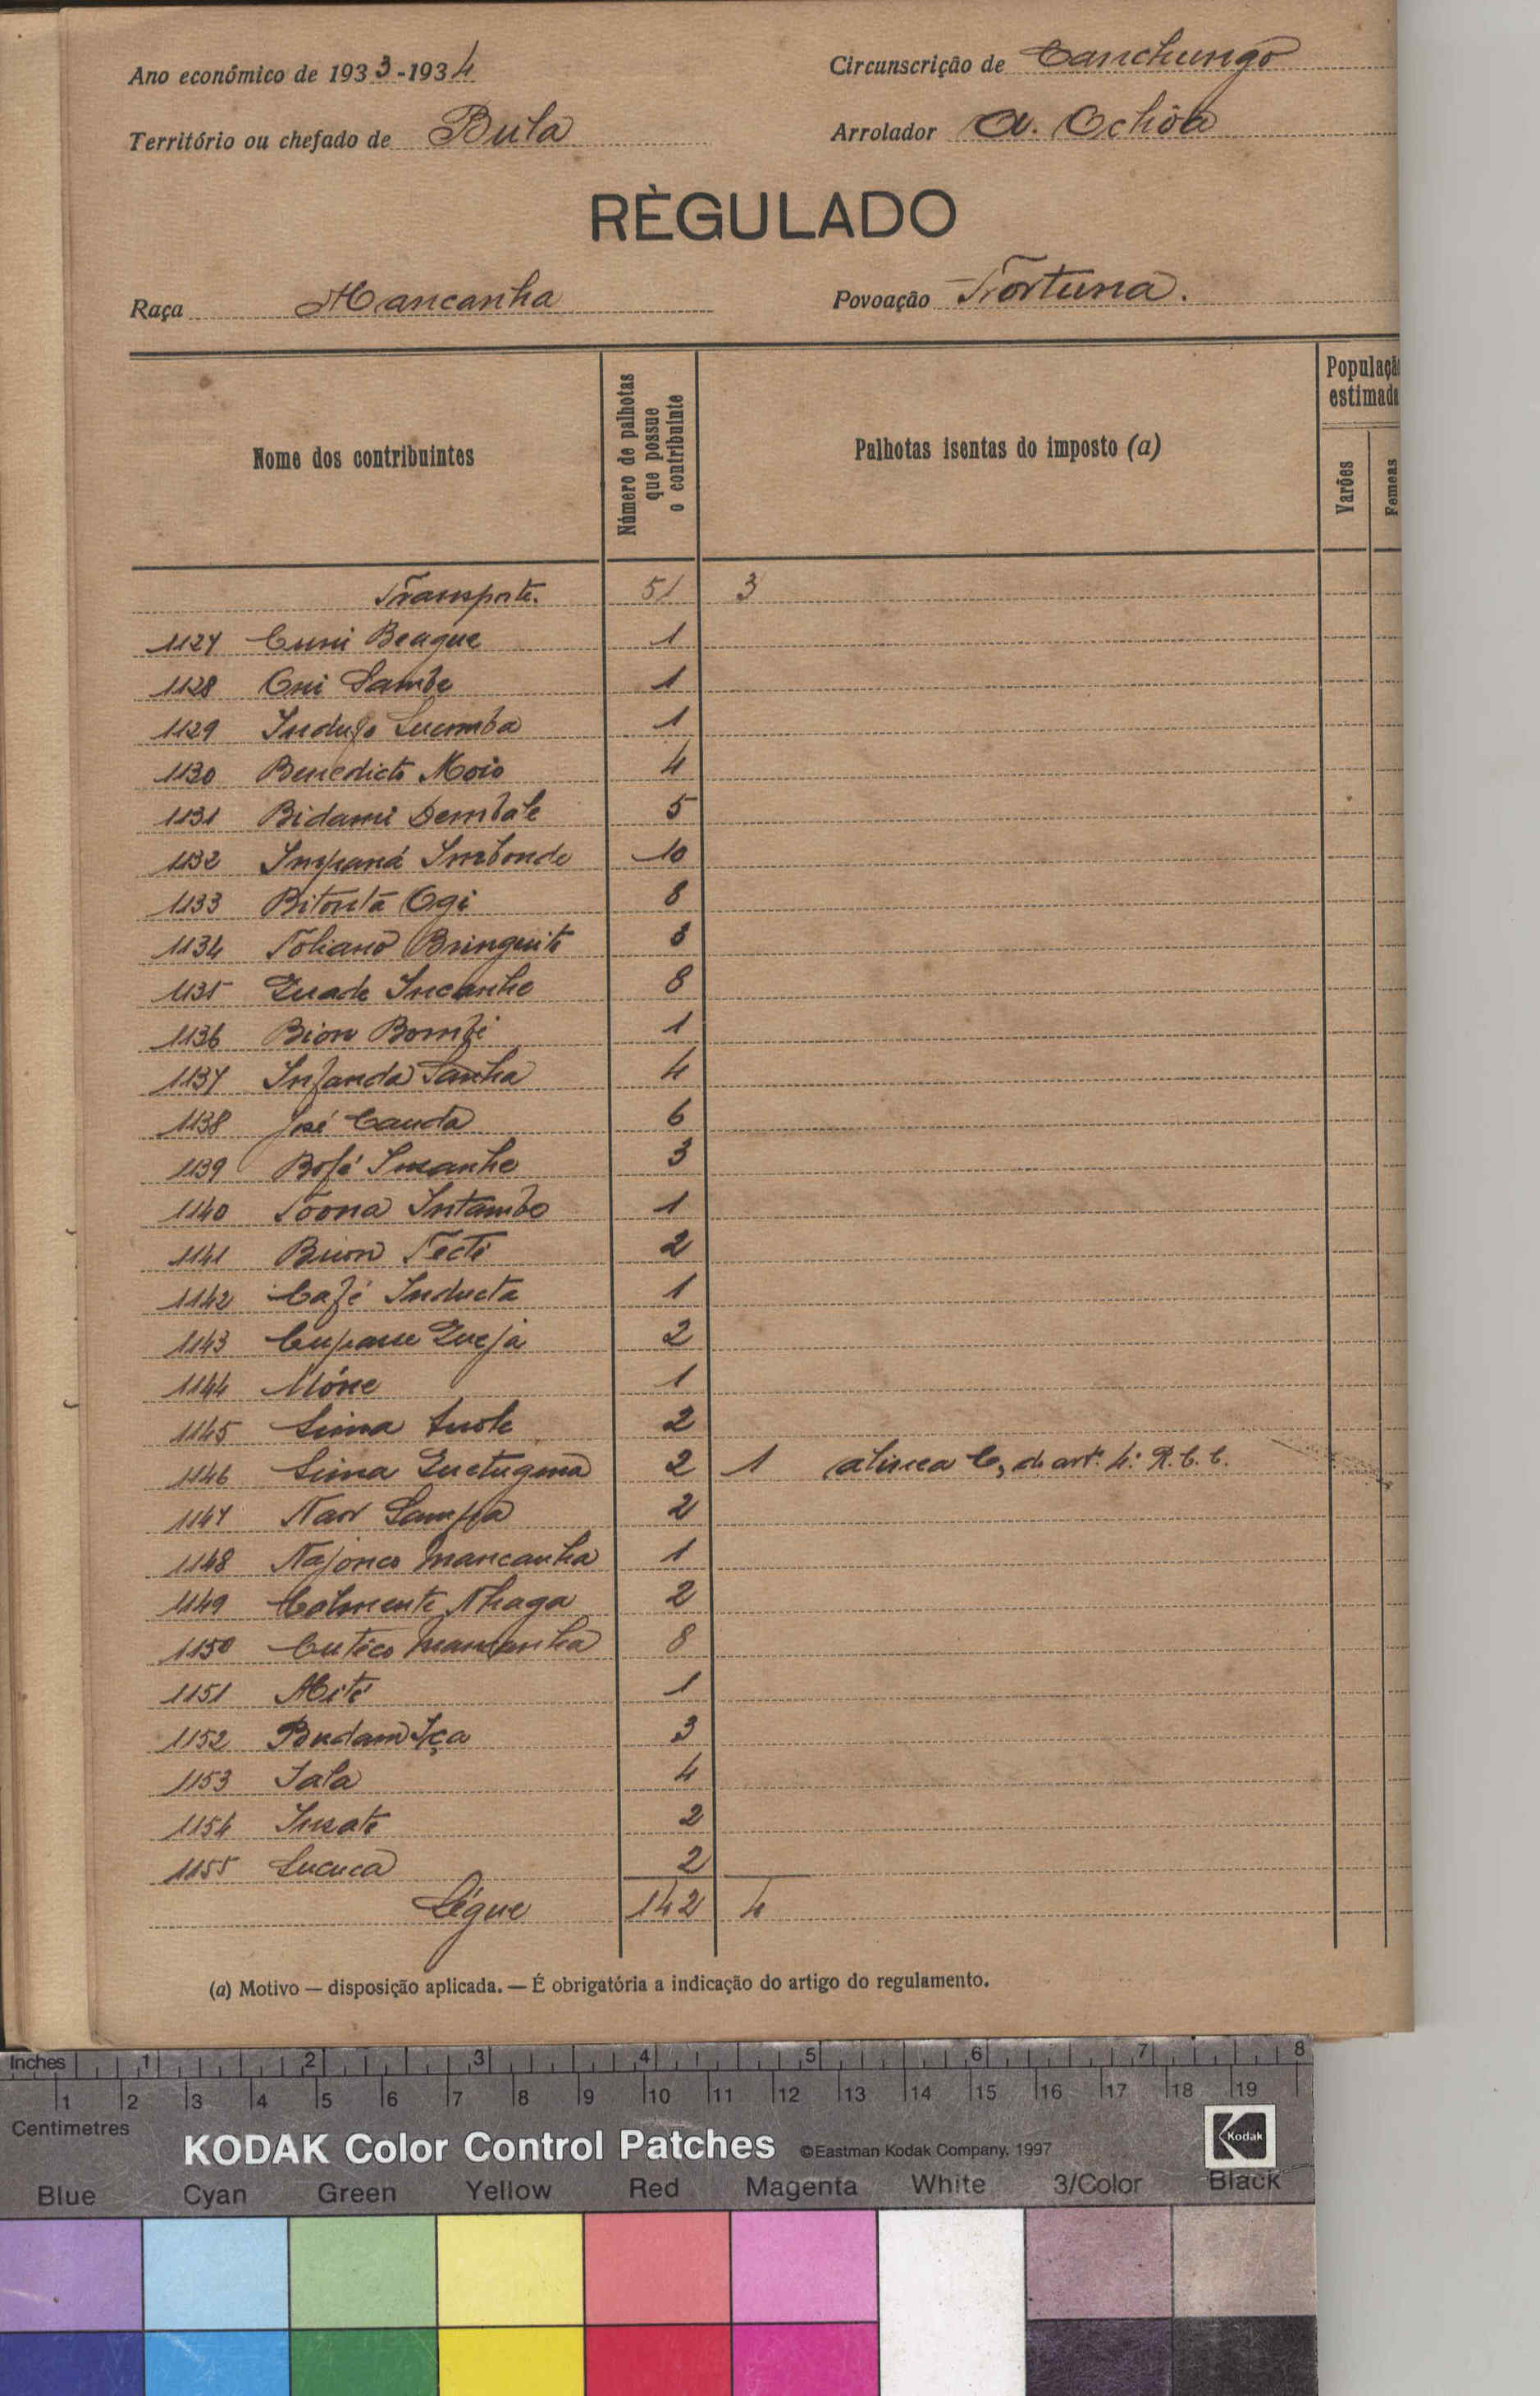 Ano económico de 1933-1934
Circunscrição de Canchungo
Território ou chefado de Bula
Arrolador A. Ochôa
RÈGULADO
Raça Mancanha
Povoação Fortuna.
Nome dos contribuintes
Número de palhotas que possue o contribuinte
Palhotas isentas do imposto (a)
Populaçã
estimada
Varões
Femeas
Transporte. 51 3
1127 Cuni Beague 1
1128 Oni Sambe 1
1129 Indufo Luemba 1
1130 Benedicto Moio 4
1131 Bidami Dembale 5
1132 Impaná Imbonde 10
1133 Bitontã Ogi 8
1134 Toliano Bringuite 8
1135 Quade Incanhe 8
1136 Bion Bombi 1
1137 Infanda Sanha 4
1138 José Cauda 6
1139 Bofé 3
1140 Toona Intambo 1
1141 Buon Tecti 2
1142 Café Inducta 1
1143 Cupane Queja 2
1144 Móne 1
1145 Lima 2
1146 Lima 2 1 alinea C, do artº 4º R. C. C.
1147 Naw Sampa 2
1148 Najonco Mancanha 1
1149 Colmente Nhaga 2
1150 Cuteco Mancanha 8
1151 Mité 1
1152 Budam Iça 3
1153 Sala 4
1154 2
1155 Lucuca 2
Ségue 142 4
(a) Motivo — disposição aplicada. — É obrigatória a indicação do artigo do regulamento.
Inches 1 2 3 4 5 6 7 8
1 2 3 4 5 6 7 8 9 10 11 12 13 14 15 16 17 18 19
Centimetres
KODAK Color Control Patches ©Eastman Kodak Company, 1997 Kodak
Blue Cyan Green Yellow Red Magenta White 3/Color Black